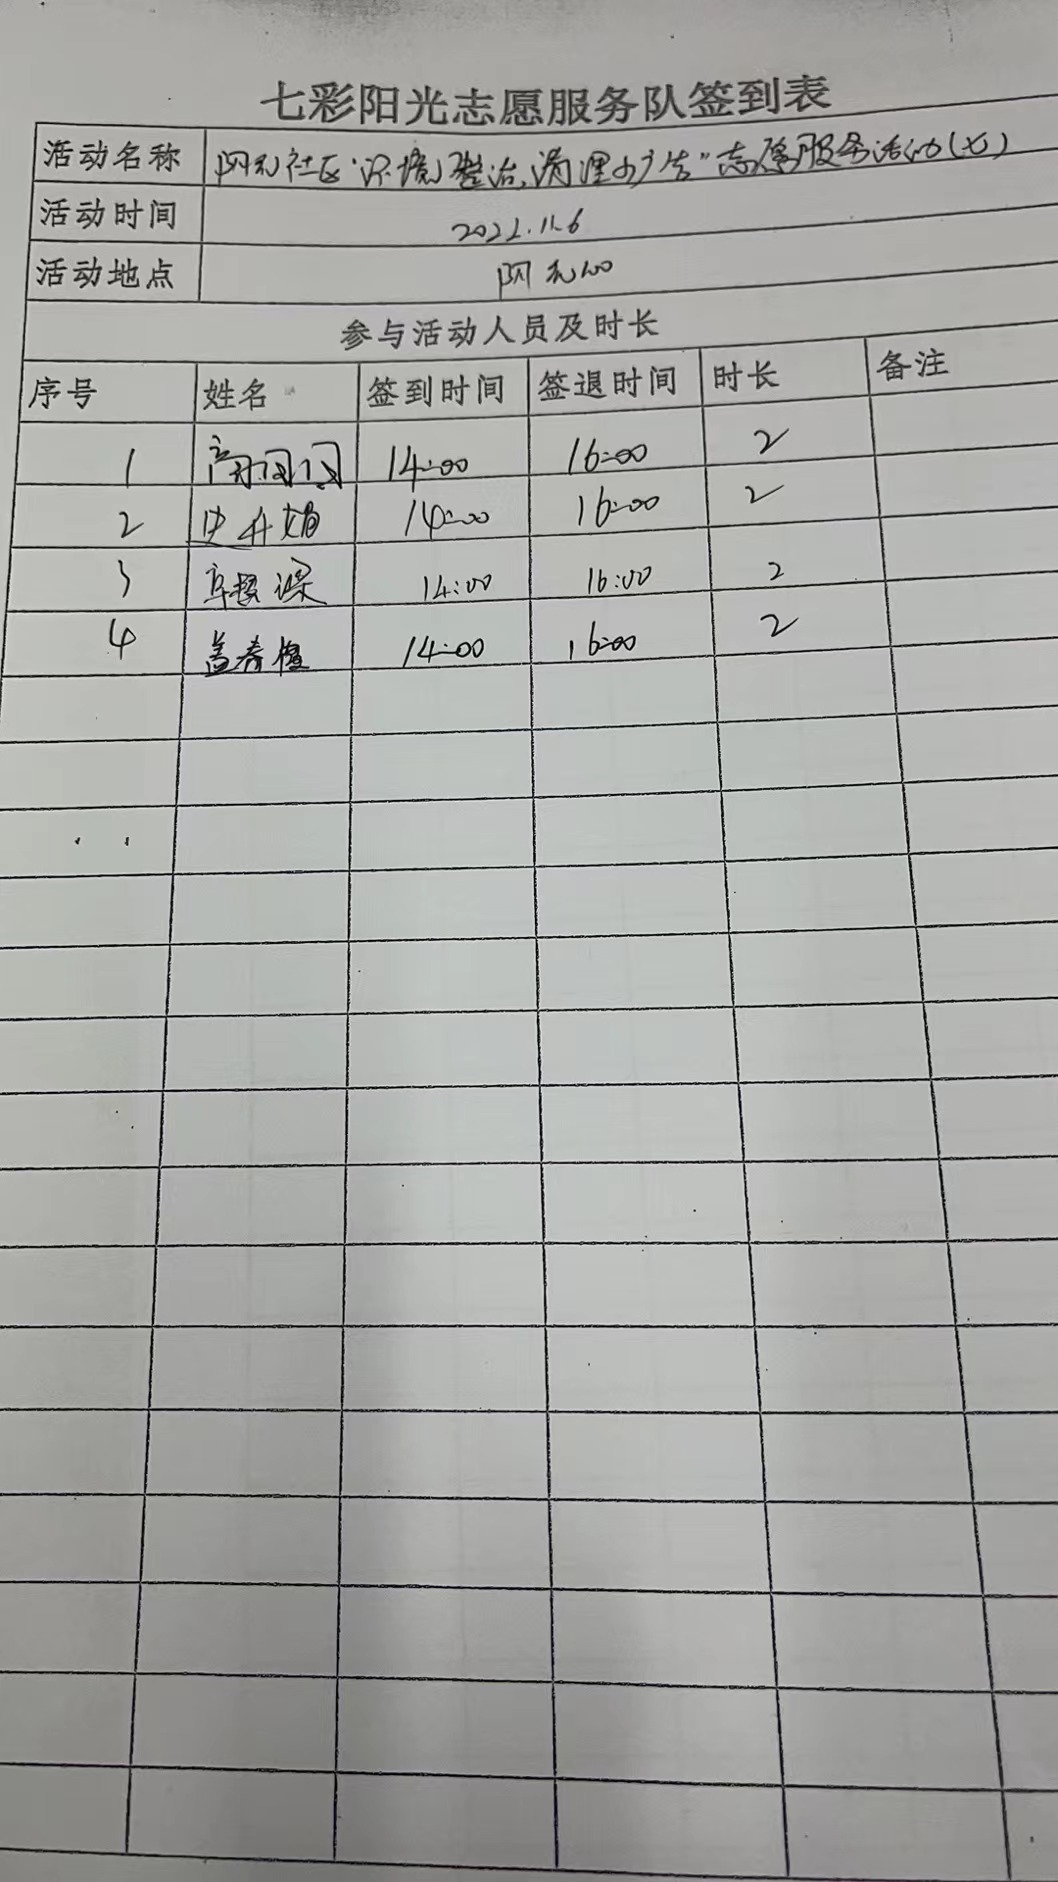 七彩阳光志愿服务队签到表
活动名称 社区"环境整治、清理小广告"志愿服务活动(七)
活动时间 2022.11.6
活动地点
参与活动人员及时长
序号 姓名 签到时间 签退时间 时长 备注
1 高闪闪 14:00 16:00 2
2 史升娟 14:00 16:00 2
3 14:00 16:00 2
4 14:00 16:00 2